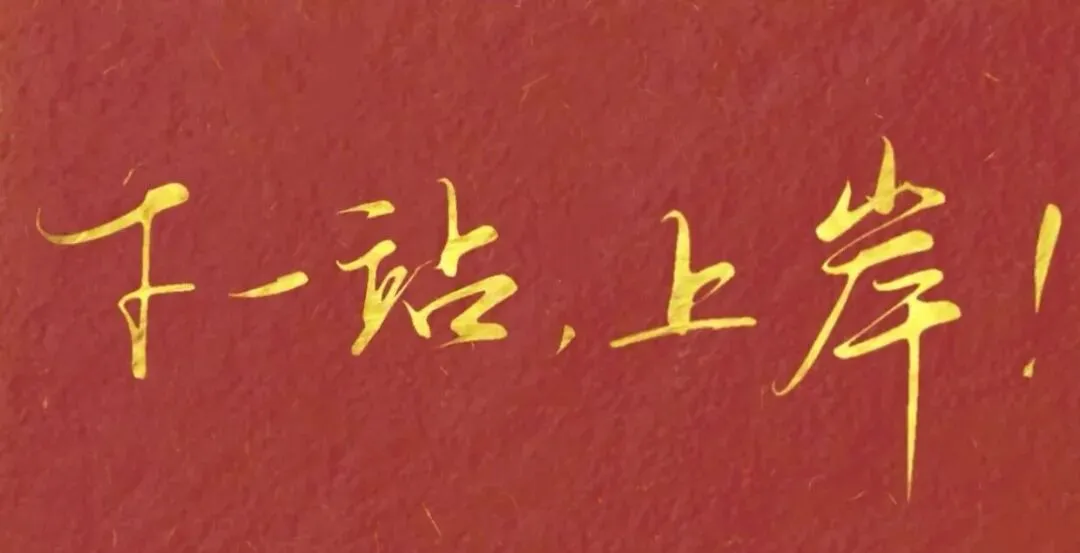 下一站，上岸！